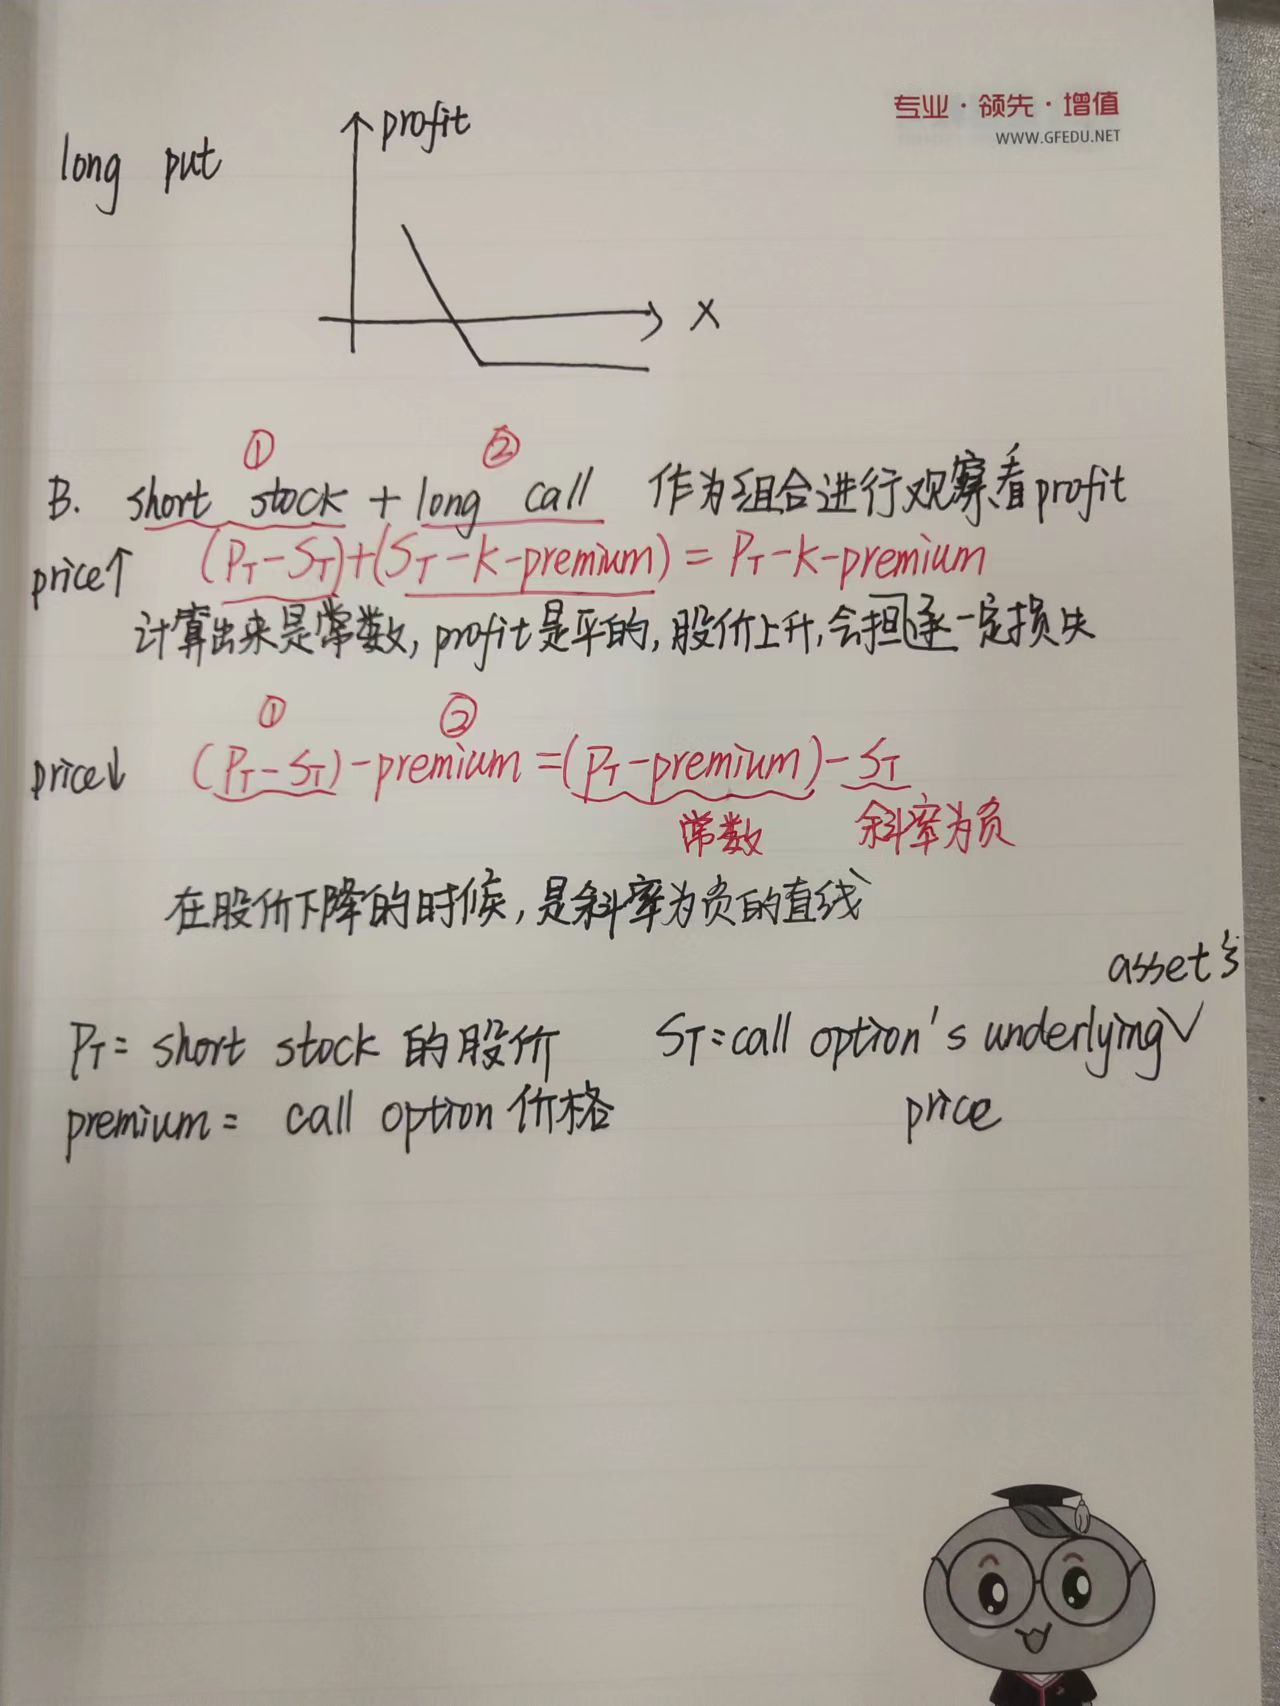 专业·领先·增值
WWW.GFEDU.NET
long put
profit
X
① ②
B. short stock + long call 作为组合进行观察看profit
price↑ (PT-ST)+(ST-K-premium) = PT-K-premium
计算出来是常数, profit是平的, 股价上升, 会担承一定损失
① ②
price↓ (PT-ST)-premium =(PT-premium)-ST
常数 斜率为负
在股价下降的时候, 是斜率为负的直线
asset's
PT= short stock 的股价 ST=call option's underlying√
premium= call option 价格 price